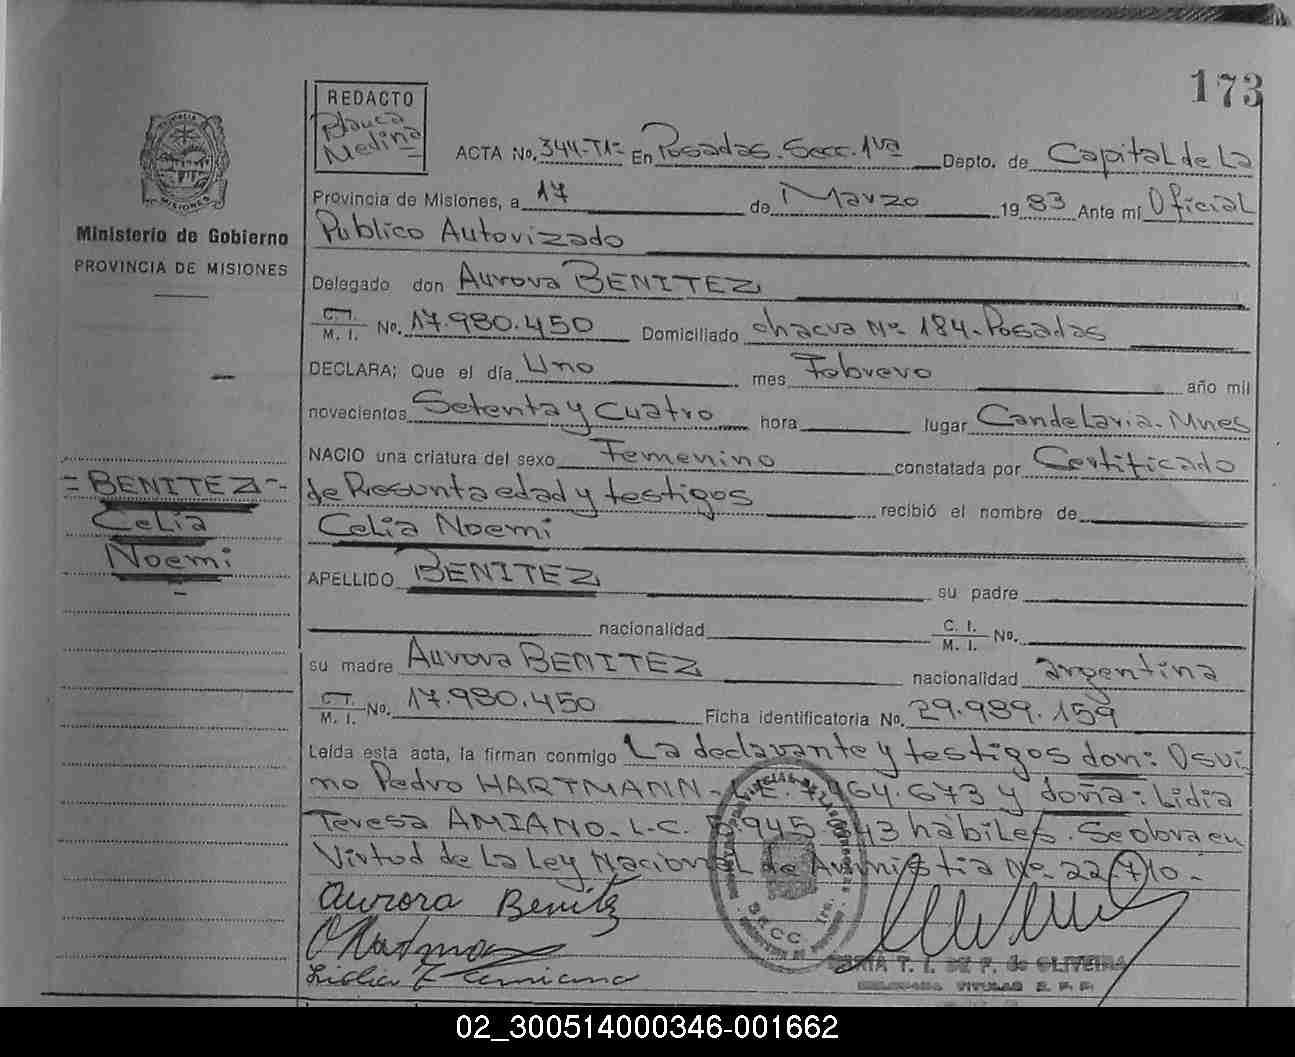 173
REDACTO
Blanca
Medina
ACTA No. 344-T1= En Posadas. Secc. 1ra Depto. de Capital de La
Provincia de Misiones, a 17 de Marzo 1983 Ante mí Oficial
Publico Autorizado
Delegado don Aurora BENITEZ
C. I.
M. I. No. 17.980.450 Domiciliado chacra Nº 184-Posadas
DECLARA; Que el día Uno mes Febrero año mil
novecientos Setenta y Cuatro hora lugar Candelaria-Mnes
NACIO una criatura del sexo Femenino constatada por Certificado
de Presunta edad y testigos recibió el nombre de
Celia Noemi
APELLIDO BENITEZ su padre
nacionalidad C. I.
M. I. No.
su madre Aurora BENITEZ nacionalidad argentina
C. I.
M. I. No. 17.980.450 Ficha identificatoria No. 29.989.159
Leída esta acta, la firman conmigo La declarante y testigos don: Osvi
no Pedro HARTMANN- 7.964.673 y doña: Lidia
Teresa AMIANO-L-C. habiles. Se obra en
Virtud de La Ley Nacional de Amnistia Nº 22.710.-
Aurora Benitez
T. I. DE F. de OLIVEIRA
TITULAR R. P. P.
Ministerio de Gobierno
PROVINCIA DE MISIONES
= BENITEZ -
Celia
Noemi
02_300514000346-001662